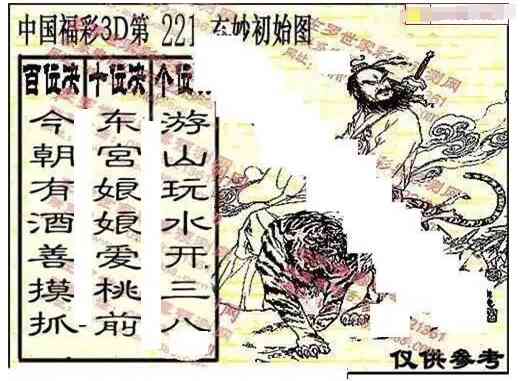 中国福彩3D第 221 玄妙初始图
百位决 十位决 个位..
今朝有酒善摸抓
东宮娘娘爱桃前
游山玩水开三八
仅供参考